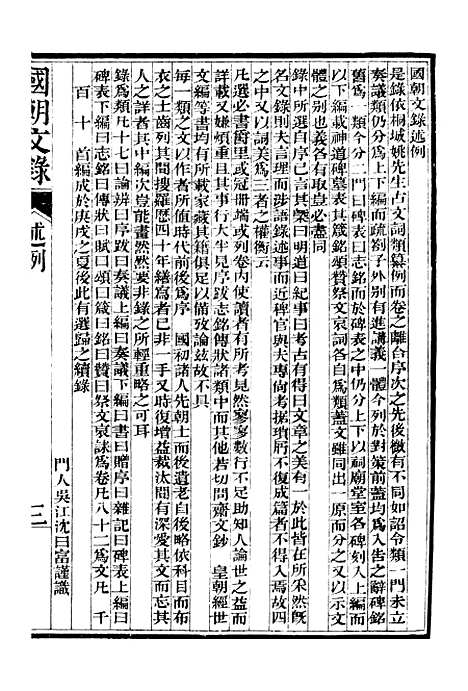 國朝文錄述例
是錄依桐城姚先生古文詞類纂例而卷之離合序次之先後微有不同如詔令類一門未立
奏議類仍分爲上下編而疏劄子外別有進講義一體今列於對策前蓋均爲入告之辭碑銘
舊爲一類今分二門曰碑表曰志銘而於碑表之中仍分上下以祠廟堂室各碑刻入上編而
以下編載神道碑墓表其箴銘頌贊祭文哀詞各自爲類蓋文雖同出一原而分之又以示文
體之別也義各有取豈必盡同
錄中所選自序己言其槩曰明道曰紀事曰考古有得曰文章之美有一於此皆在所采然旣
名文錄則夫言理而涉語錄述事而近稗官與夫專尚考据瑣屑不復成篇者不得入焉故四
之中又以詞美爲三者之權衡云
凡選必書爵里或冠冊端或列卷內使讀者有所考見然寥寥數行不足助知人論世之益而
詳載又嫌煩重且其行事大半見序跋志銘傳狀諸類中而其他若切問齋文鈔　皇朝經世
文編等書均有所載家藏其籍俱足以備攷論玆故不具
每一類之文以作者所值時代前後爲序　國初諸人先朝士而後遺老自後略依科目而布
衣之士齒列其間搜羅歷四十年繕寫者已非一手又時復增益裁汰閒有深愛其文而忘其
人之詳者其中編次豈能畫然然要非錄之所輕重略之可耳
錄爲類凡十七曰論辨曰序跋曰奏議上編曰奏議下編曰書曰贈序曰雜記曰碑表上編曰
碑表下編曰志銘曰傳狀曰賦曰頌曰箴曰銘曰贊曰祭文哀誄爲卷凡八十二爲文凡　千
百　十　首編成於庚戌之夏後此有選歸之續錄
門人吳江沈曰富謹識
國朝文錄
述例
三